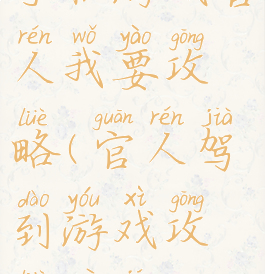 rén wǒ yào gōng
人我要攻
lüè guān rén jià
略(官人驾
dào yóu xì gōng
到游戏攻